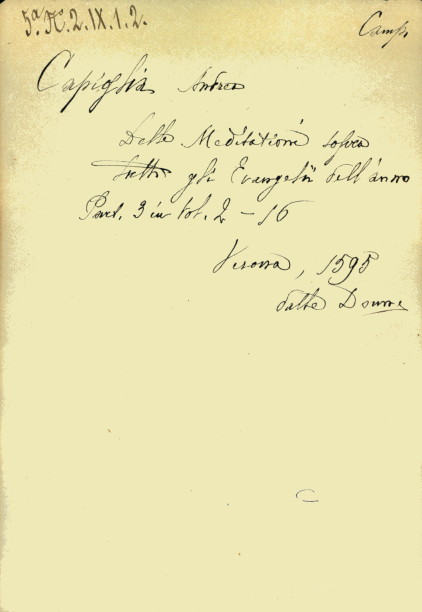 5ª. K. 2. IX. 1. 2.
Camp.
Capiglia Andrea
Delle Meditationi sopra
tutti gli Evangelii dell'anno
Part. 3 in vol. 2 - 16
Verona, 1595
dalle Donne